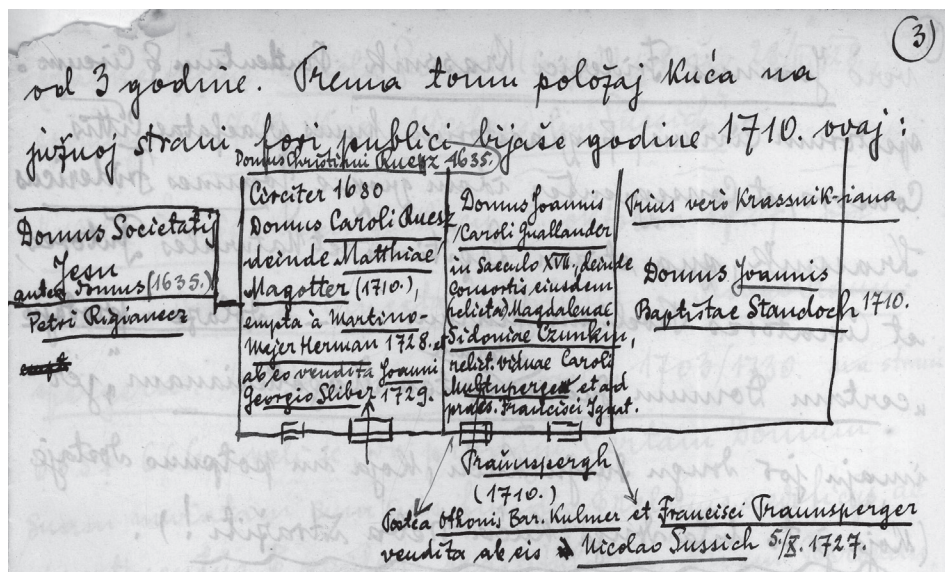 3
od 3 godine. Prema tomu položaj kuća na
južnoj strani fori publici bijaše godine 1710. ovaj:
Domus Christiani Ruesz 1635.
Domus Societatis
Jesu
antea domus (1635.)
Petri Rigianecz
Circiter 1680
Domus Caroli Ruesz
deinde Matthiae
Magotter (1710.),
empta à Martino
Mejer Herman 1728. et
ab eo vendita Joanni
Georgio Sliber 1729.
Domus Joannis
Caroli Guallander
in Saeculo XVII, deinde
consortis eiusdem
relicta Magdalenae
Sidoniae Czunkin,
relict. viduae Caroli
et ad
praes. Francisci Ignat.
Praunspergh
(1710.)
Prius verò Krassnik-riana
Domus Joannis
Baptistae Standoch 1710.
Postea Othonis Bar. Kulmer et Francisci Praunsperger
vendita ab eis Nicolao Sussich 5./X. 1727.